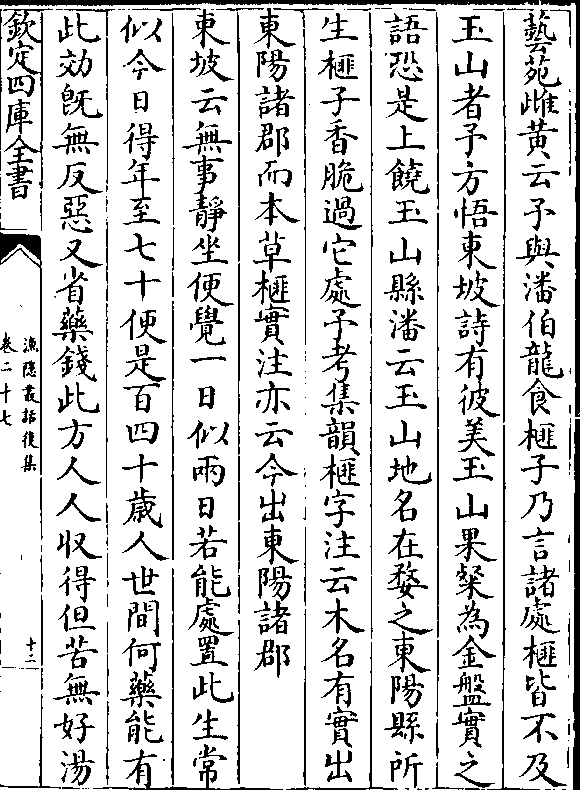 藝苑雌黄云予與潘伯龍食榧子乃言諸處榧皆不及
玉山者予方悟東坡詩有彼美玉山果粲為金盤實之
語恐是上饒玉山縣潘云玉山地名在婺之東陽縣所
生榧子香脆過它處予考集韻榧字注云木名有實出
東陽諸郡而本草榧實注亦云今出東陽諸郡
東坡云無事靜坐便覺一日似兩日若能處置此生常
似今日得年至七十便是百四十歲人世間何藥能有
此効旣無反惡又省藥錢此方人人収得但苦無好湯
欽定四庫全書
漁隠叢話後集
卷二十七
十二